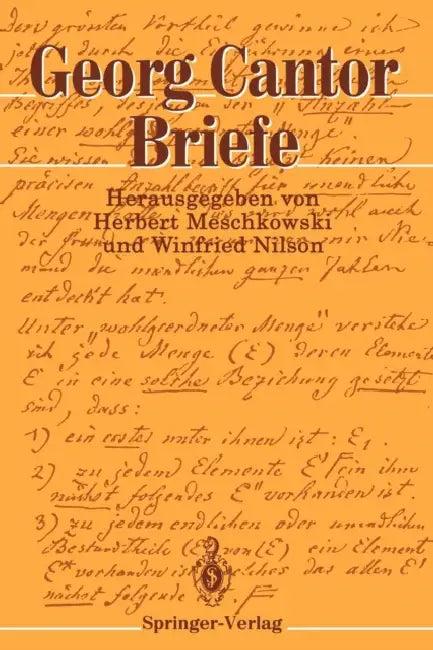 Den grössten Vortheil gewinne ich
jetzt durch die Einführung eines
Georg Cantor
Begriffes, desjenigen der „Anzahl
einer wohlgeordneten Menge".
Briefe
Sie wissen keinen
präcisen Anzahlbegriff für unendliche
Herausgegeben von
Mengen wohl auch
Herbert Meschkowski
der
und Winfried Nilson
mand die unendlichen ganzen Zahlen
entdeckt hat.
Unter „wohlgeordneter Menge" verstehe
ich jede Menge (E) deren Elemente
E in eine solche Beziehung gesetzt
sind, dass:
1) ein erstes unter ihnen ist: E₁.
2) zu jedem Elemente E' ein ihm
nächst folgendes E" vorhanden ist.
3) zu jedem endlichen oder unendlichen
Bestandtheile (E') von (E) ein Element
E" vorhanden ist welches das allen E'
nächst folgende ist.
Springer-Verlag